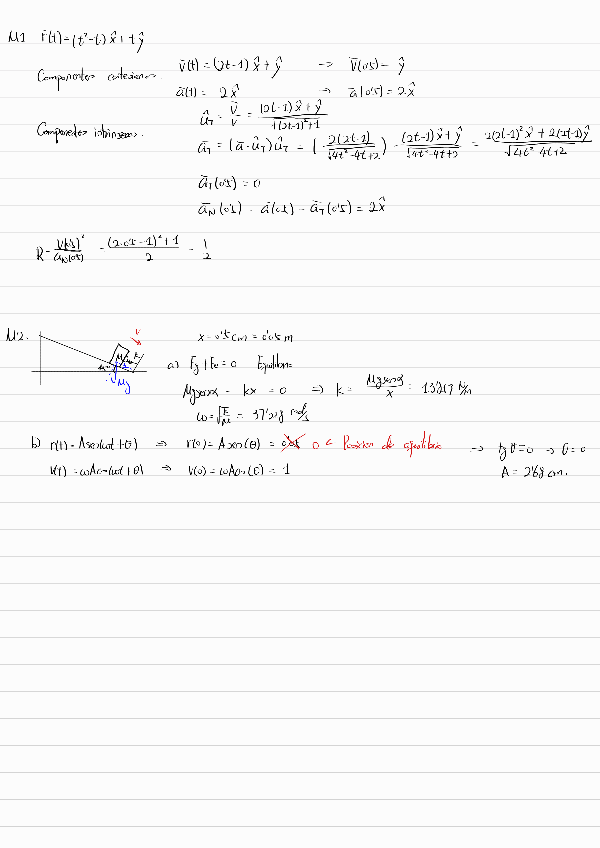 M1 r̄(t) = (t²-t) x̂ + t ŷ
Componentes cartesianas. v̄(t) = (2t-1) x̂ + ŷ → v̄(0'5) = ŷ
ā(t) = 2x̂ → ā(0'5) = 2x̂
Componentes intrínsecas. û_T = v̄/v = ((2t-1) x̂ + ŷ)/√((2t-1)²+1)
ā_T = (ā·û_T) û_T = (2(2t-1)/√(4t²-4t+2)) · ((2t-1) x̂ + ŷ)/√(4t²-4t+2) = (2(2t-1)² x̂ + 2(2t-1) ŷ)/√(4t²-4t+2)
ā_T(0'5) = 0
ā_N(0'5) = ā(0'5) - ā_T(0'5) = 2x̂
R = v(0'5)²/a_N(0'5) = ((2·0'5-1)²+1)/2 = 1/2
M2. v
Mg
x = 0'5 cm = 0'005 m
a) Fg + Fe = 0 Equilibrio
Mg senα - kx = 0 ⇒ k = Mg senα/x =
ω = √(k/M) =
b) r(t) = A sen(ωt+θ) ⇒ r(0) = A sen(θ) = 0 ← Posicion de equilibrio → tg θ = 0 → θ = 0
v(t) = ωA cos(ωt+θ) ⇒ v(0) = ωA cos(θ) = 1 A = 2'68 cm.